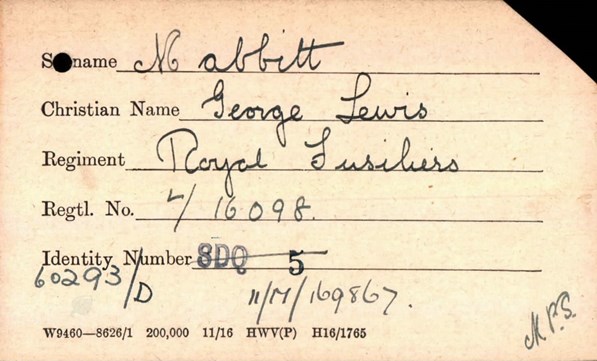 Surname Mabbitt
Christian Name George Lewis
Regiment Royal Fusiliers
Regtl. No. L/16098.
Identity Number 8DQ 5
60293/D
11/M/169867.
M.P.S.
W9460—8626/1 200,000 11/16 HWV(P) H16/1765